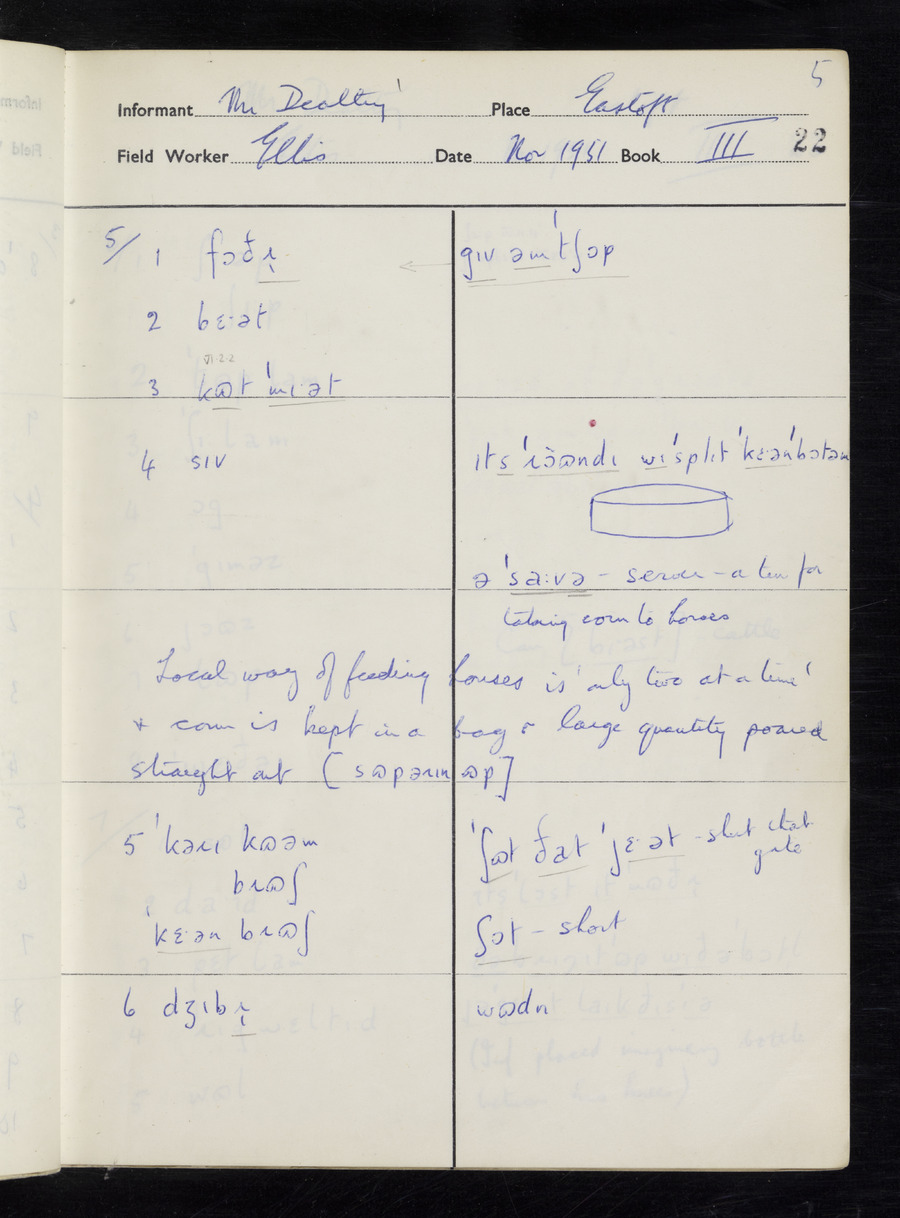 5
Informant Mr Dealtry Place Eastoft
Field Worker Ellis Date Nov 1951 Book III 22
5/ 1 fɔðɹ̩ ← gɪv əm ˈtʃɒp
2 bɛ·ət
VI·2·2
3 kɷt ˈmɪ·ət
4 sɪv ɪts ˈɹɔ̈ɷndɪ wɪˈsplɪt ˈkɛ·ənˈbɔtəm
ə ˈsa:və – server – a tin for
taking corn to horses
Local way of feeding horses is 'only two at a time'
& corn is kept in a bag & large quantity poured
straight out [sɷpərɪn ɷp]
5 ˈkəɹɪ kɷəm ˈʃɷt ðat ˈjɛ·ət – shut that
gate
bɹɷʃ
ˈkɛ·ən bɹɷʃ ʃɔt – short
6 dʒɪbɹ̩ wɷdn